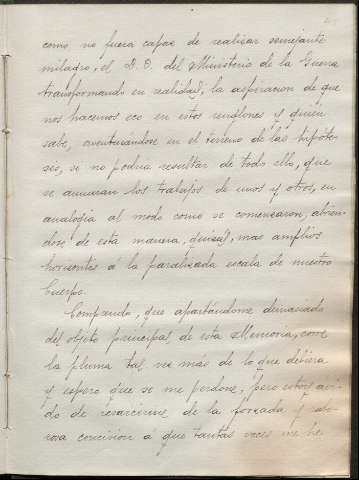 como no fuera capaz de realizar semejante
milagro, el D. O. del Ministerio de la Guerra
transformando en realidad, la aspiracion de que
nos hacemos eco en estos renglones y quien
sabe, aventurándose en el terreno de las hipóte-
sis, si no podria resultar de todo ello, que
se aunaran los trabajos de unos y otros, en
analogia al modo como se comenzaron, abrien-
dose de esta manera, quizá, mas amplios
horizontes á la paralizada escala de nuestro
Cuerpo.
Comprendo, que apartándome demasiado
del objeto principal de esta Memoria, corre
la pluma tal vez más de lo que debiera
y espero que se me perdone; pero estoy ávi-
do de resarcirme de la forzada y
concision á que tantas veces me he